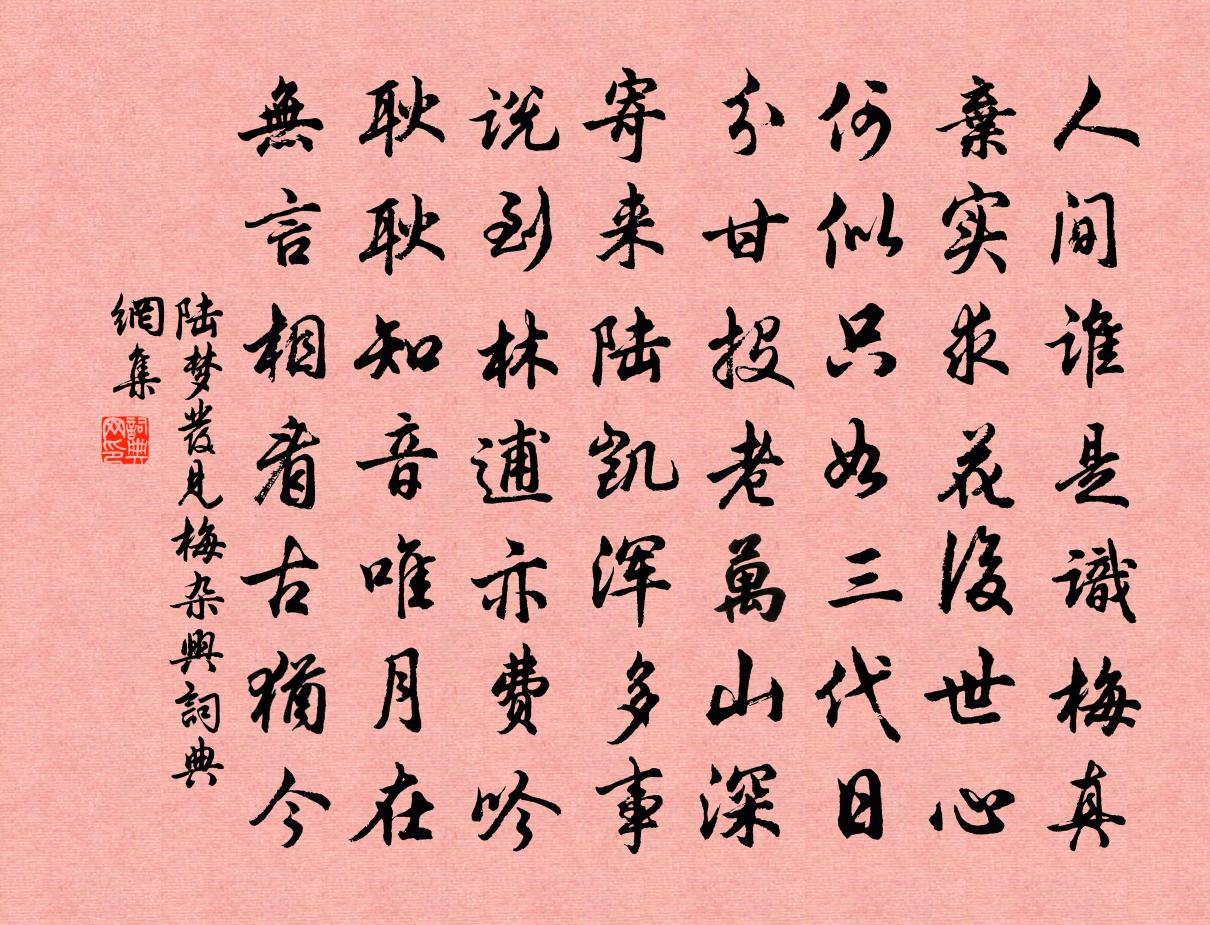 人间谁是識梅真
棄实求花後世心
何似只如三代日
分甘投老萬山深
寄来陆凯浑多事
说到林逋亦费吟
耿耿知音唯月在
無言相看古猶今
陆梦發見梅杂興詞典
網集
詞典
网印